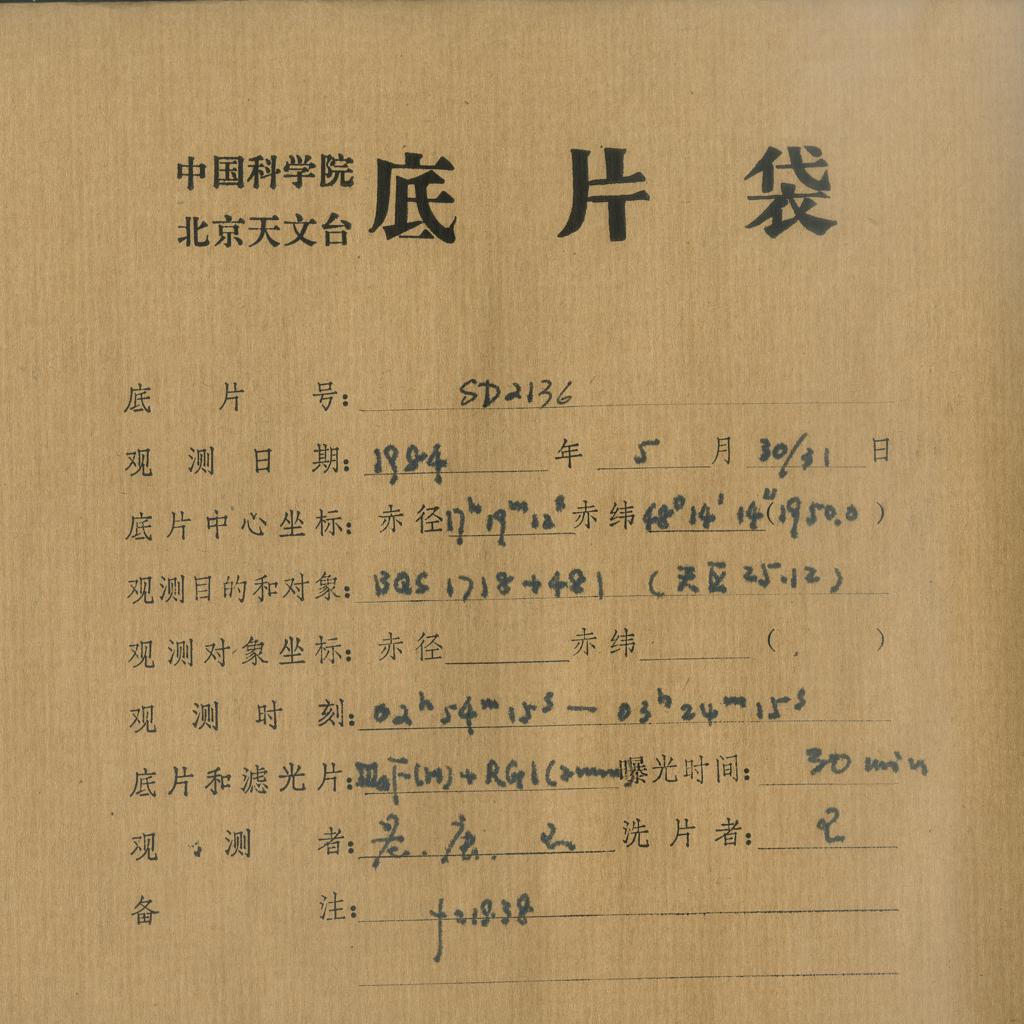 中国科学院
北京天文台
底片袋
底片号: SD2136
观测日期: 1984 年 5 月 30/31 日
底片中心坐标: 赤径 17h 19m 12s 赤纬 48° 14' 14" (1950.0)
观测目的和对象: BQS 1718+481 (天区 25.12)
观测对象坐标: 赤径 赤纬 ( )
观测时刻: 02h 54m 15s — 03h 24m 15s
底片和滤光片: + RG1(2mm 曝光时间: 30 min
观测者: 洗片者:
备注: f=1838